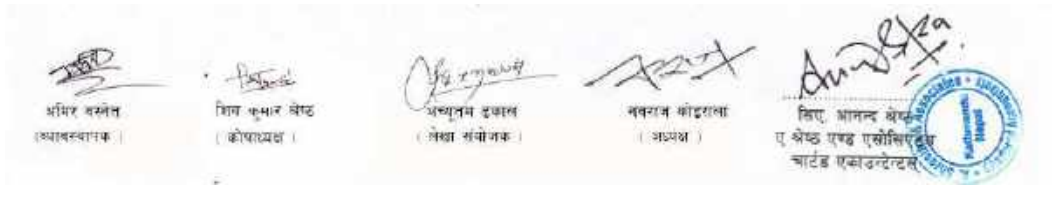 अमिर बस्नेत
(व्यवस्थापक)
शिव कुमार श्रेष्ठ
(कोषाध्यक्ष)
अच्युतम ढकाल
(लेखा संयोजक)
नवराज कोइराला
(अध्यक्ष)
सिए. आनन्द श्रेष्ठ
ए श्रेष्ठ एण्ड एसोसिएट्स
चार्टड एकाउन्टेन्टस्